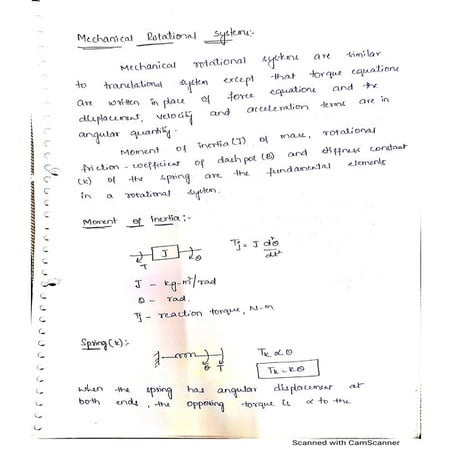 Mechanical Rotational Systems:-
Mechanical rotational systems are similar
to translational system except that torque equations
are written in place of force equations and the
displacement, velocity and acceleration terms are in
angular quantity.
Moment of inertia (J) of mass, rotational
friction-coefficient of dashpot (B) and stiffness constant
(K) of the spring are the fundamental elements
in a rotational system.
Moment of Inertia:-
J
T θ
Tj = J d²θ/dt²
J - kg-m²/rad
θ - rad.
Tj - reaction torque, N-m
Spring (K):-
θ T
Tk ∝ θ
Tk = Kθ
when the spring has angular displacement at
both ends, the opposing torque is ∝ to the
Scanned with CamScanner